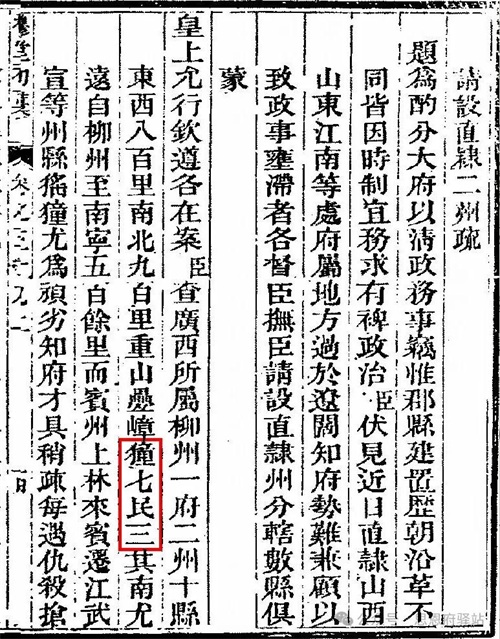 請設直隸二州疏
題爲酌分大府以清政務事竊惟郡縣建置歷朝沿革不
同皆因時制宜務求有裨政治臣伏見近日直隸山西
山東江南等處府屬地方過於遼闊知府勢難兼顧以
致政事壅滯者各督臣撫臣請設直隸州分轄數縣俱
蒙
皇上允行欽遵各在案臣查廣西所屬柳州一府二州十縣
東西八百里南北九百里重山疊嶂獞七民三其南尤
遠自柳州至南寧五百餘里而賓州上林來賓遷江武
宣等州縣猺獞尤爲頑劣知府才具稍疎每遇仇殺搶
穆堂初集
卷之三十九上
公众号
府驿站